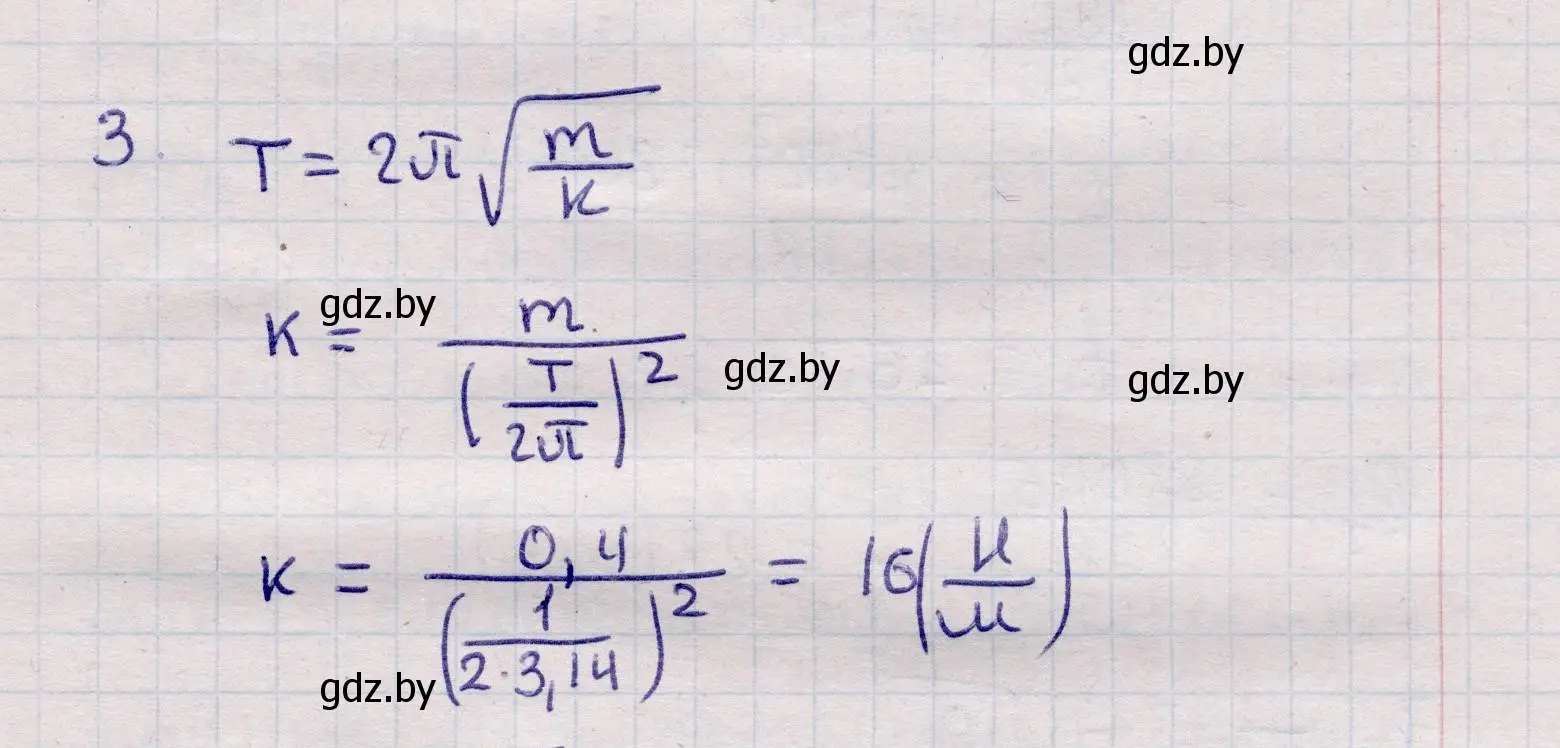 gdz.by
3. T = 2π√(m/k)
gdz.by
k = m/(T/2π)²
gdz.by
gdz.by
k = 0,4/(1/(2·3,14))² = 16(Н/м)
gdz.by